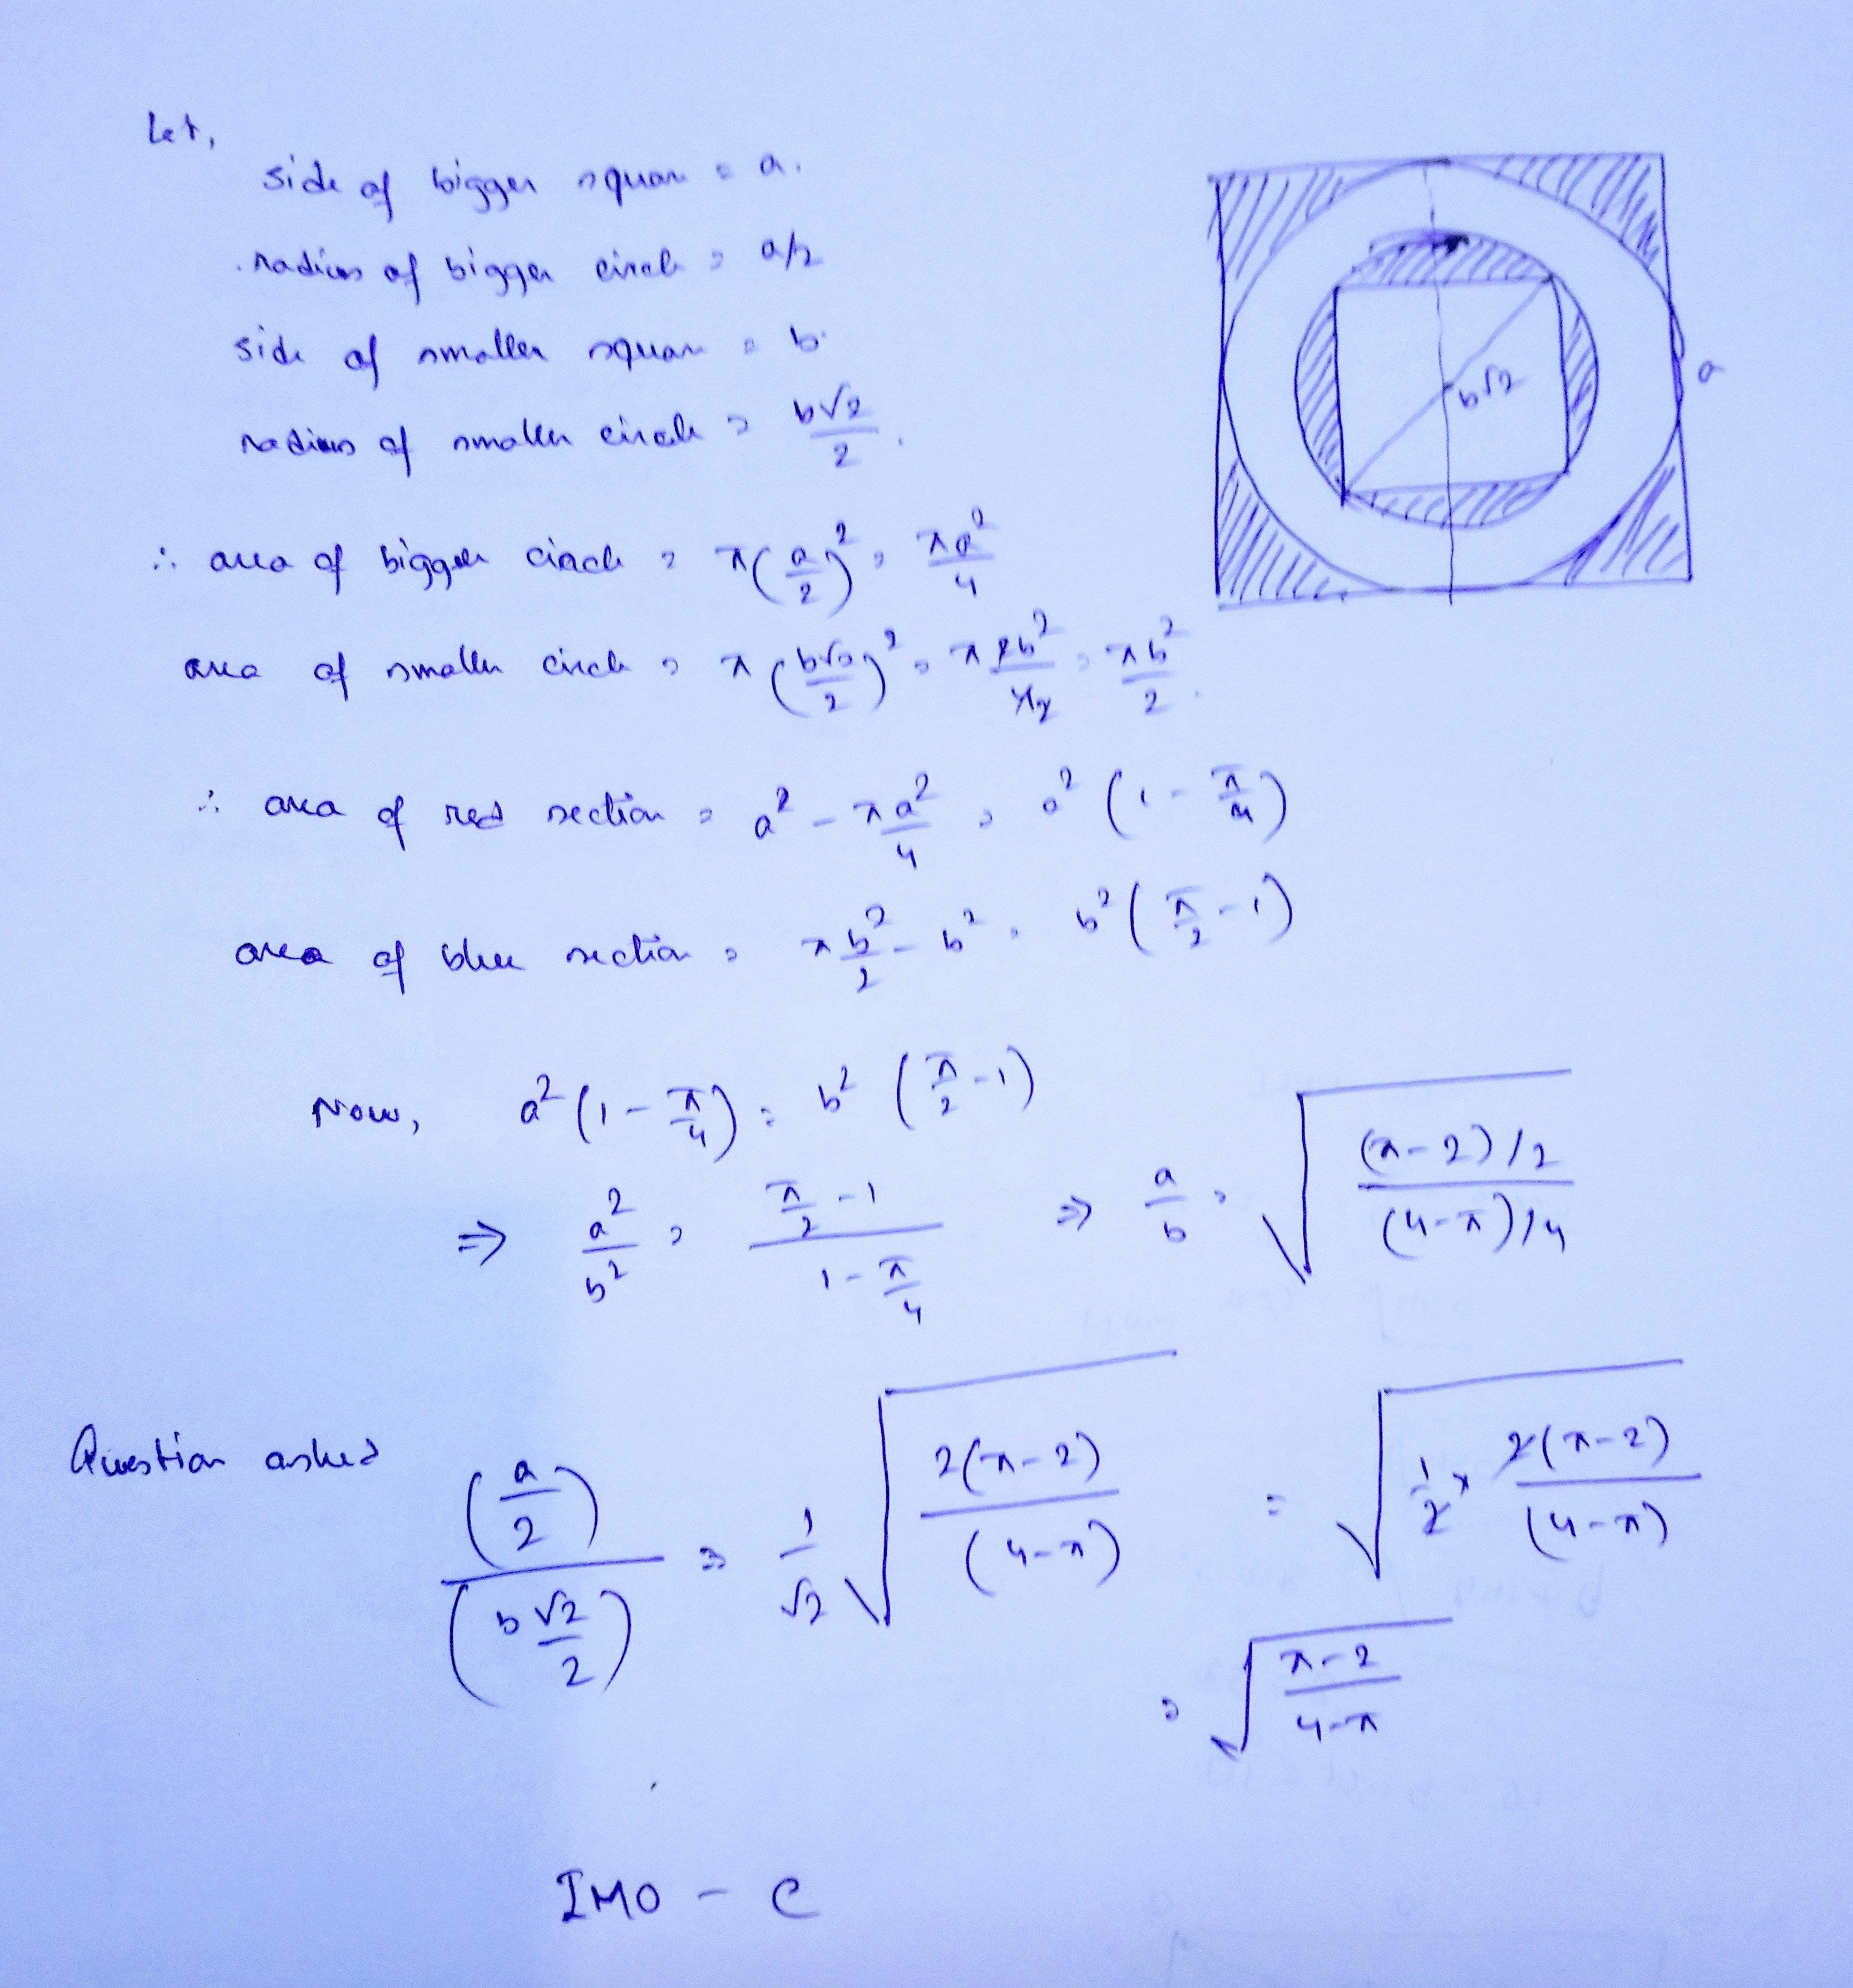 Let,
side of bigger square = a.
radius of bigger circle = a/2
side of smaller square = b
radius of smaller circle = b√2/2.
a
b√2
∴ area of bigger circle = π(a/2)² = πa²/4
area of smaller circle = π(b√2/2)² = π2b²/4 2 = πb²/2.
∴ area of red section = a² - πa²/4 = a²(1 - π/4)
area of blue section = πb²/2 - b² = b²(π/2 - 1)
Now, a²(1 - π/4) = b²(π/2 - 1)
⇒ a²/b² = (π/2 - 1)/(1 - π/4) ⇒ a/b = √((π-2)/2 / (4-π)/4)
Question asked (a/2)/(b√2/2) = 1/√2 √(2(π-2)/(4-π)) = √(1/2 × 2(π-2)/(4-π))
= √(π-2/4-π)
IMO - C